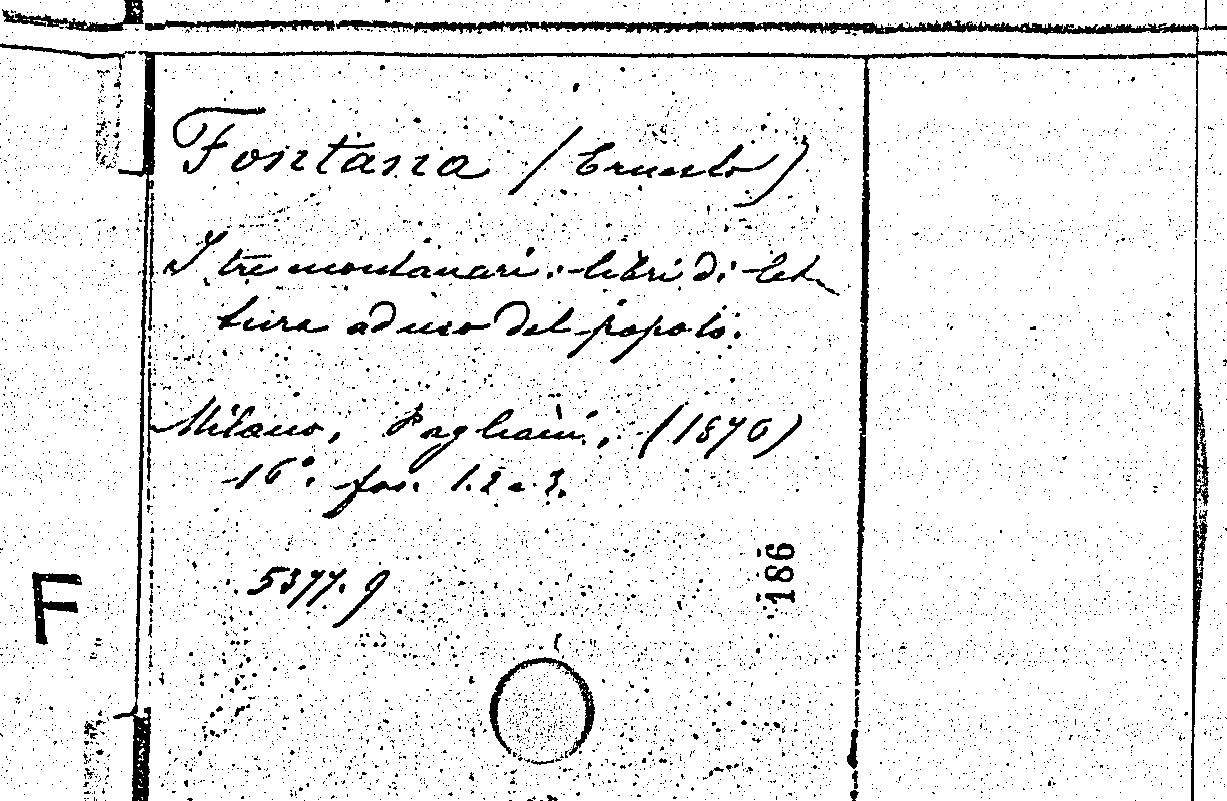 Fontana (Ernesto)
I tre montanari: libri di let-
tura ad uso del popolo.
Milano, Pagliani, (1870)
16°. fas. 1. 2 e 3.
5377. 9
186
F